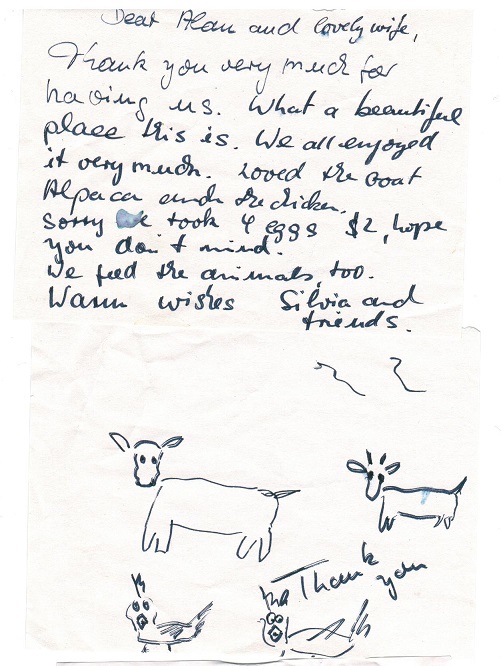 Dear Alan and lovely wife,
Thank you very much for
having us. What a beautiful
place this is. We all enjoyed
it very much. Loved the Goat
Alpaca and the chicken.
sorry we took 4 eggs $2, hope
you don't mind.
We feed the animals, too.
Warm wishes Silvia and
friends.
Thank
you